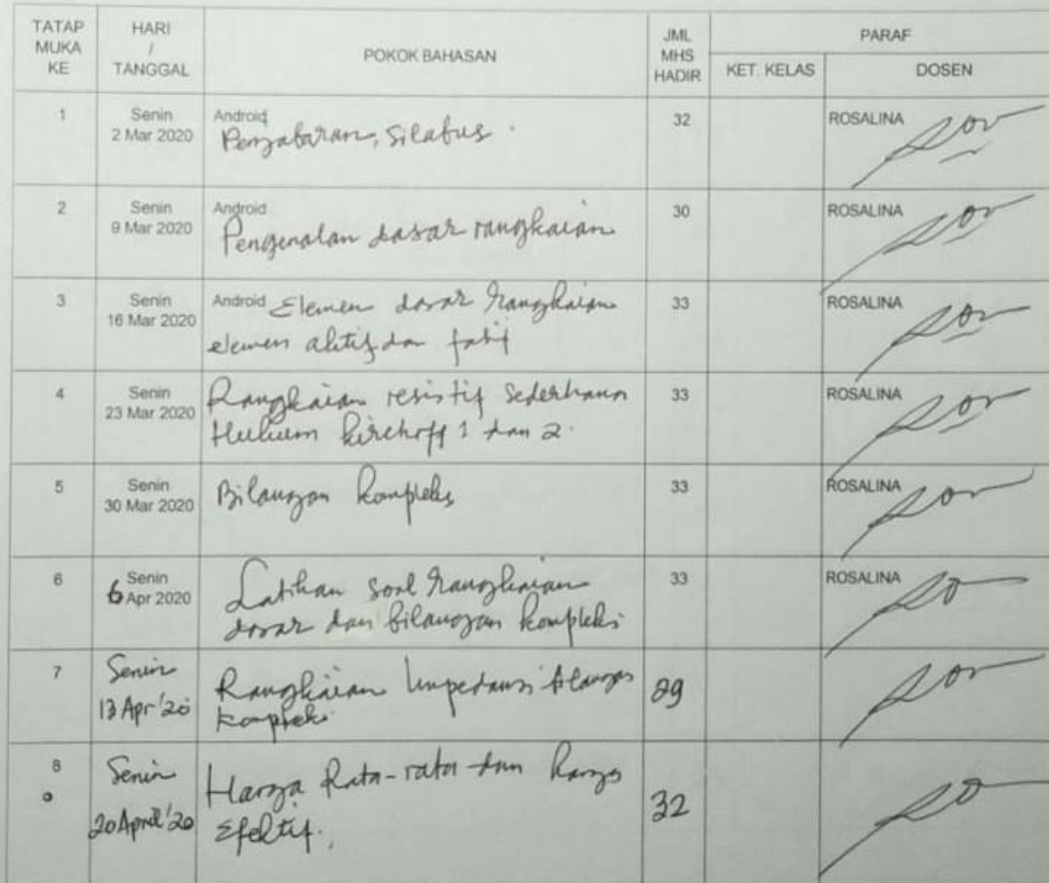 TATAP MUKA KE
HARI / TANGGAL
POKOK BAHASAN
JML MHS HADIR
PARAF
KET. KELAS
DOSEN
1
Senin
2 Mar 2020
Android
Penjabaran, Silabus.
32
ROSALINA
2
Senin
9 Mar 2020
Android
Pengenalan dasar rangkaian
30
ROSALINA
3
Senin
16 Mar 2020
Android Elemen dasar rangkaian
elemen aktif dan pasif
33
ROSALINA
4
Senin
23 Mar 2020
Rangkaian resistif sederhana
Hukum kirchoff 1 dan 2.
33
ROSALINA
5
Senin
30 Mar 2020
Bilangan kompleks
33
ROSALINA
6
Senin
6 Apr 2020
Latihan soal rangkaian
dasar dan bilangan kompleks
33
ROSALINA
7
Senin
13 Apr '20
Rangkaian Impedansi
kompleks
29
8
Senin
20 April '20
Harga Rata-rata dan harga
Efektif.
32